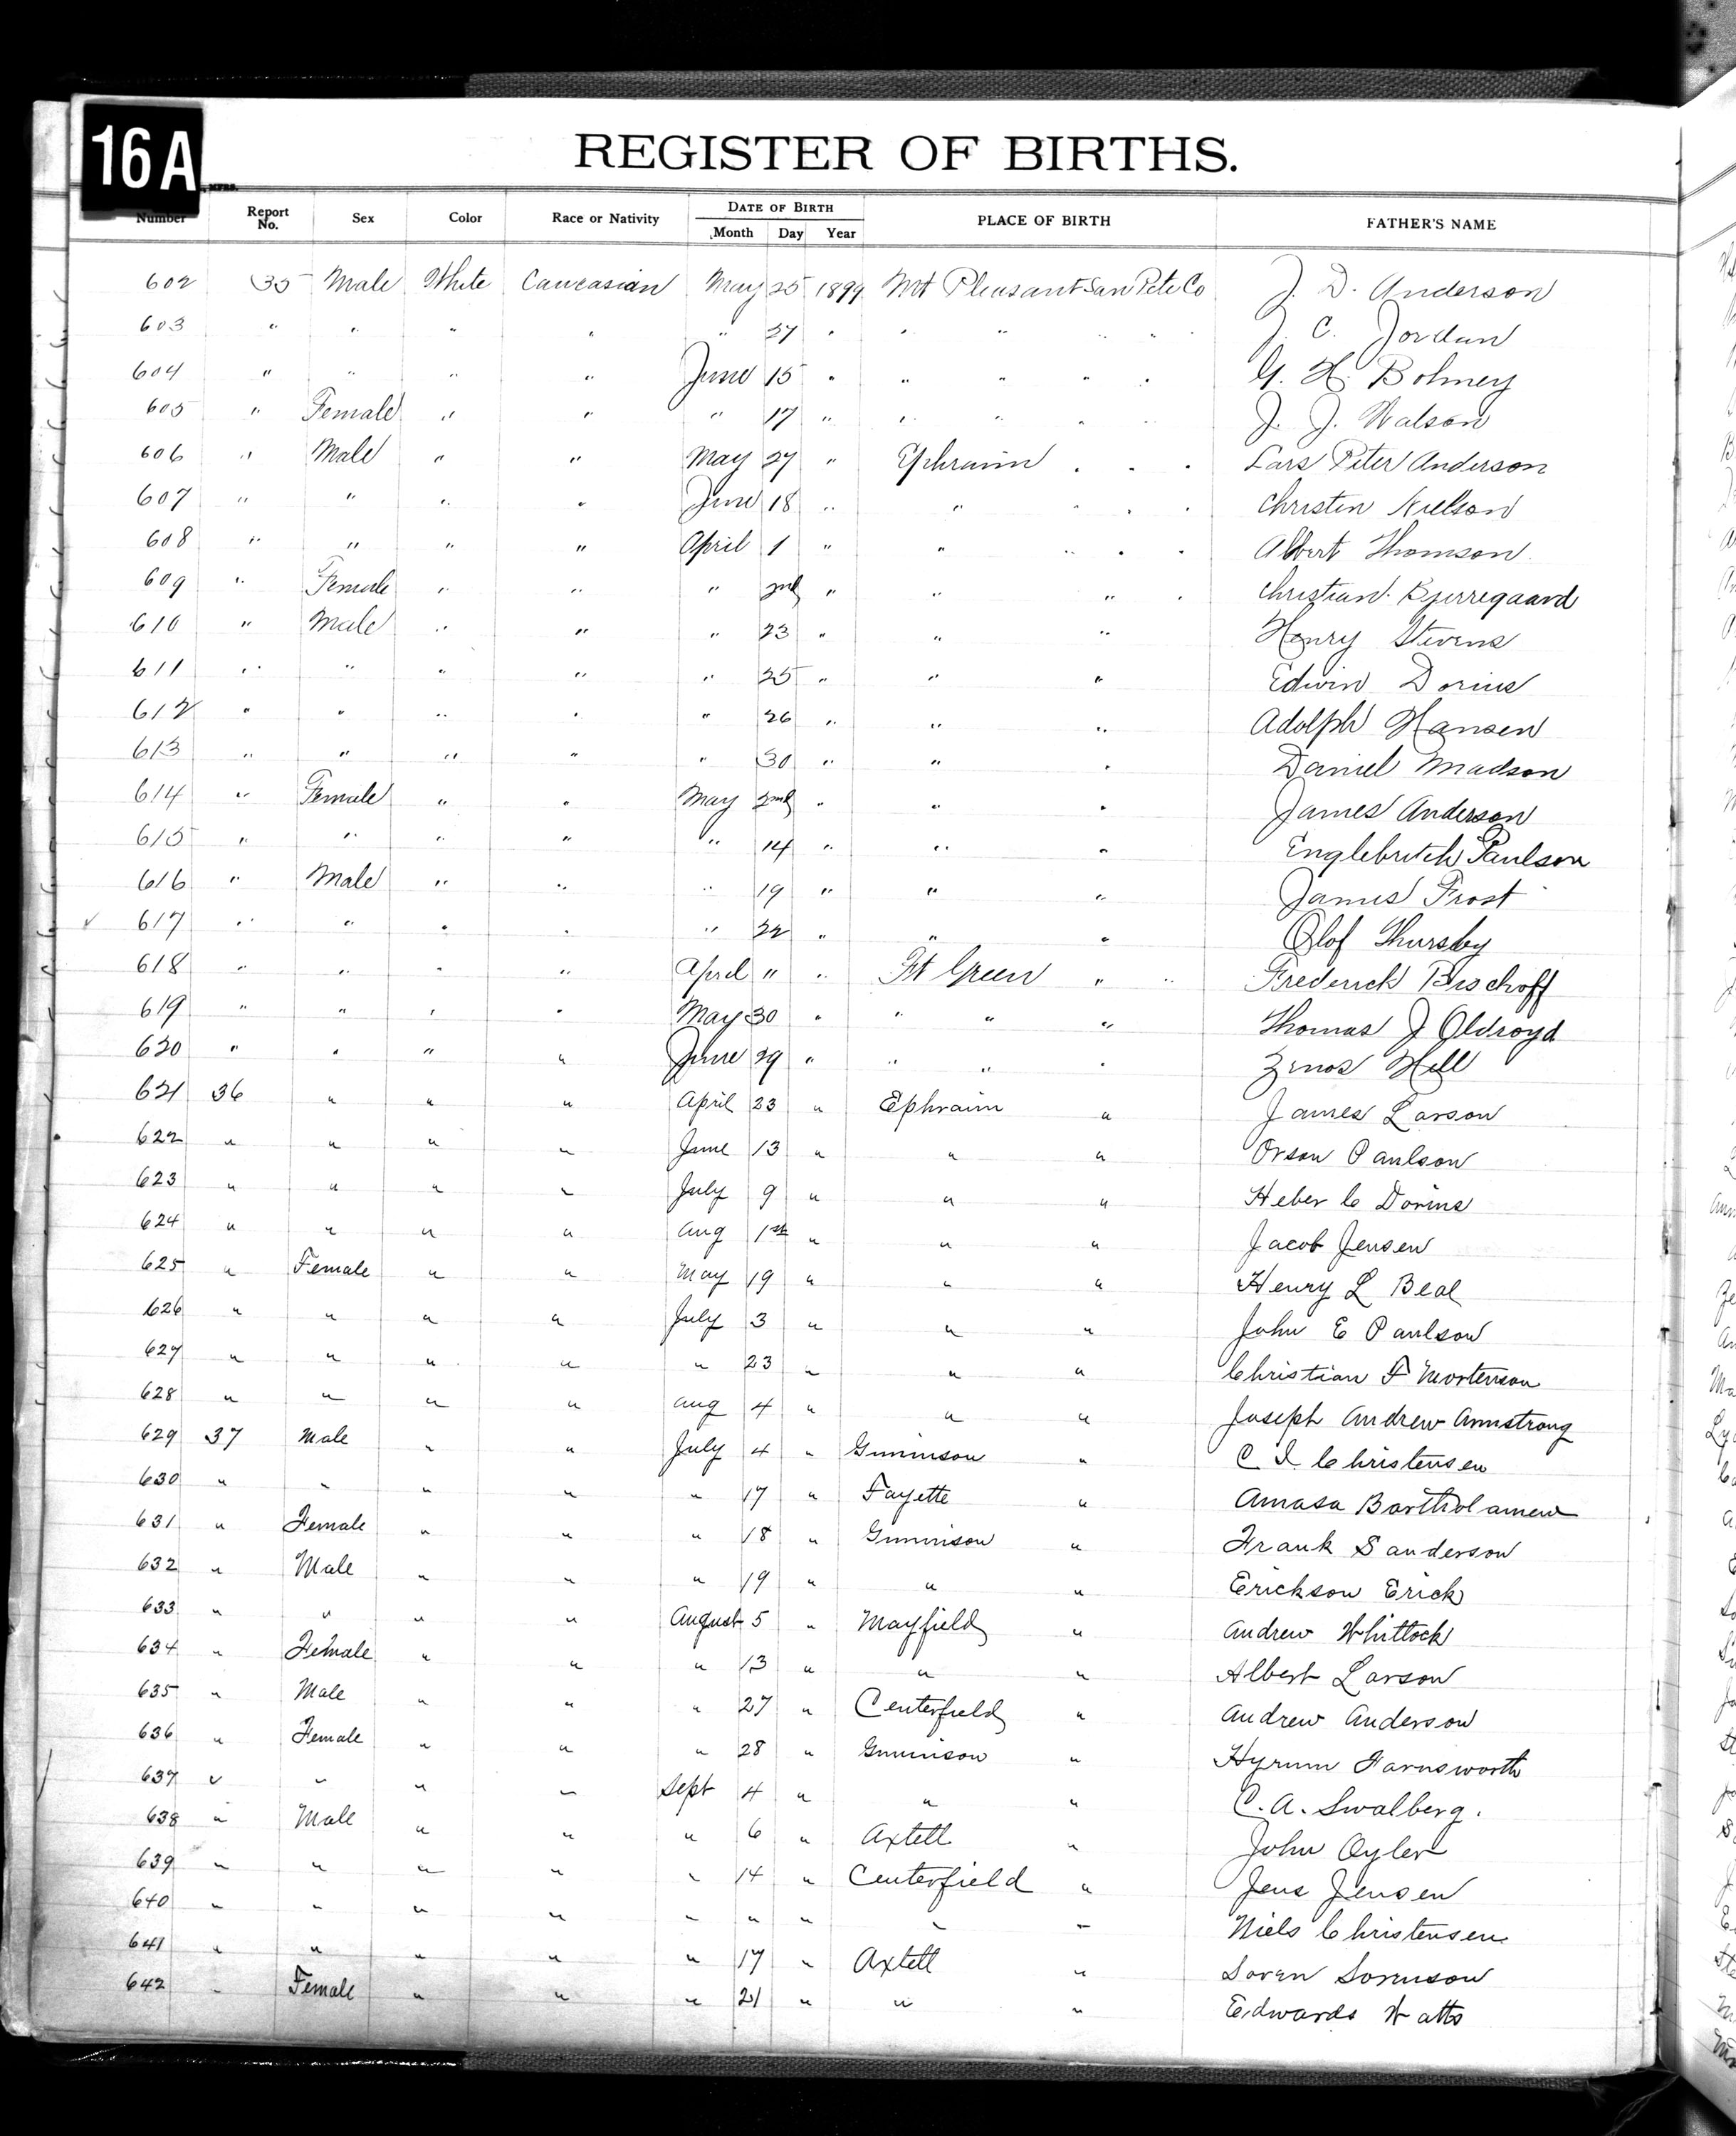 16A
MFRS.
REGISTER OF BIRTHS.
Number Report No. Sex Color Race or Nativity DATE OF BIRTH Month Day Year PLACE OF BIRTH FATHER'S NAME
602 35 Male White Caucasian May 25 1899 Mt Pleasant San Pete Co J. D. Anderson
603 " " " " " 27 " " " " " J. C. Jordan
604 " " " " June 15 " " " " " G. H. Bohney
605 " Female " " " 17 " " " " " J. J. Watson
606 " Male " " May 27 " Ephraim " " " Lars Peter Anderson
607 " " " " June 18 " " " " " Christen Nielson
608 " " " " April 1 " " " " " Albert Thomson
609 " Female " " " 2nd " " " " Christian Bjerregaard
610 " Male " " " 23 " " " Henry Stevens
611 " " " " " 25 " " " Edwin Dorius
612 " " " " " 26 " " " Adolph Hansen
613 " " " " " 30 " " " Daniel Madson
614 " Female " " May 2nd " " " James Anderson
615 " " " " " 14 " " " Englebritch Paulson
616 " Male " " " 19 " " " James Frost
617 " " " " " 22 " " " Olof Thursby
618 " " " " April " " Ft Green " " Frederick Bischoff
619 " " " " May 30 " " " " Thomas J Oldroyd
620 " " " " June 29 " " " " Zenos Hill
621 36 " " " April 23 " Ephraim " James Larson
622 " " " " June 13 " " " Orson Paulson
623 " " " " July 9 " " " Heber C Dorius
624 " " " " Aug 1st " " " Jacob Jensen
625 " Female " " May 19 " " " Henry L Beal
626 " " " " July 3 " " " John E Paulson
627 " " " " " 23 " " " Christian F Mortenson
628 " " " " Aug 4 " " " Joseph Andrew Armstrong
629 37 Male " " July 4 " Gunnison " C I Christensen
630 " " " " " 17 " Fayette " Amasa Bartholamew
631 " Female " " " 18 " Gunnison " Frank Sanderson
632 " Male " " " 19 " " " Erickson Erick
633 " " " " August 5 " Mayfield " Andrew Whittock
634 " Female " " " 13 " " " Albert Larson
635 " Male " " " 27 " Centerfield " Andrew Anderson
636 " Female " " " 28 " Gunnison " Hyrum Farnsworth
637 " " " " Sept 4 " " " C. A. Swalberg.
638 " Male " " " 6 " Axtell " John Oyler
639 " " " " " 14 " Centerfield " Jens Jensen
640 " " " " " " " " " Niels Christensen
641 " " " " " 17 " Axtell " Soren Sorenson
642 " Female " " " 21 " " " Edwards Watts